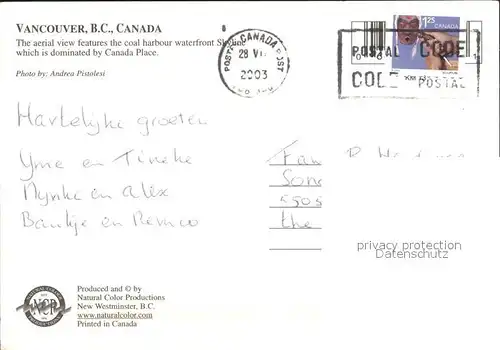 VANCOUVER, B.C., CANADA
The aerial view features the coal harbour waterfront Skyline
which is dominated by Canada Place.
Photo by: Andrea Pistolesi
POSTAL CANADA POST
28 VII
2003
1.25
CANADA
POSTAL CODE
CODE POSTAL
Hartelijke groeten
Yme en Tineke
Mynke en Alex
Baukje en Remco
Fam
5505
the
privacy protection
Datenschutz
NATURAL COLOR
NCP
PRODUCTIONS
Produced and © by
Natural Color Productions
New Westminster, B.C.
www.naturalcolor.com
Printed in Canada